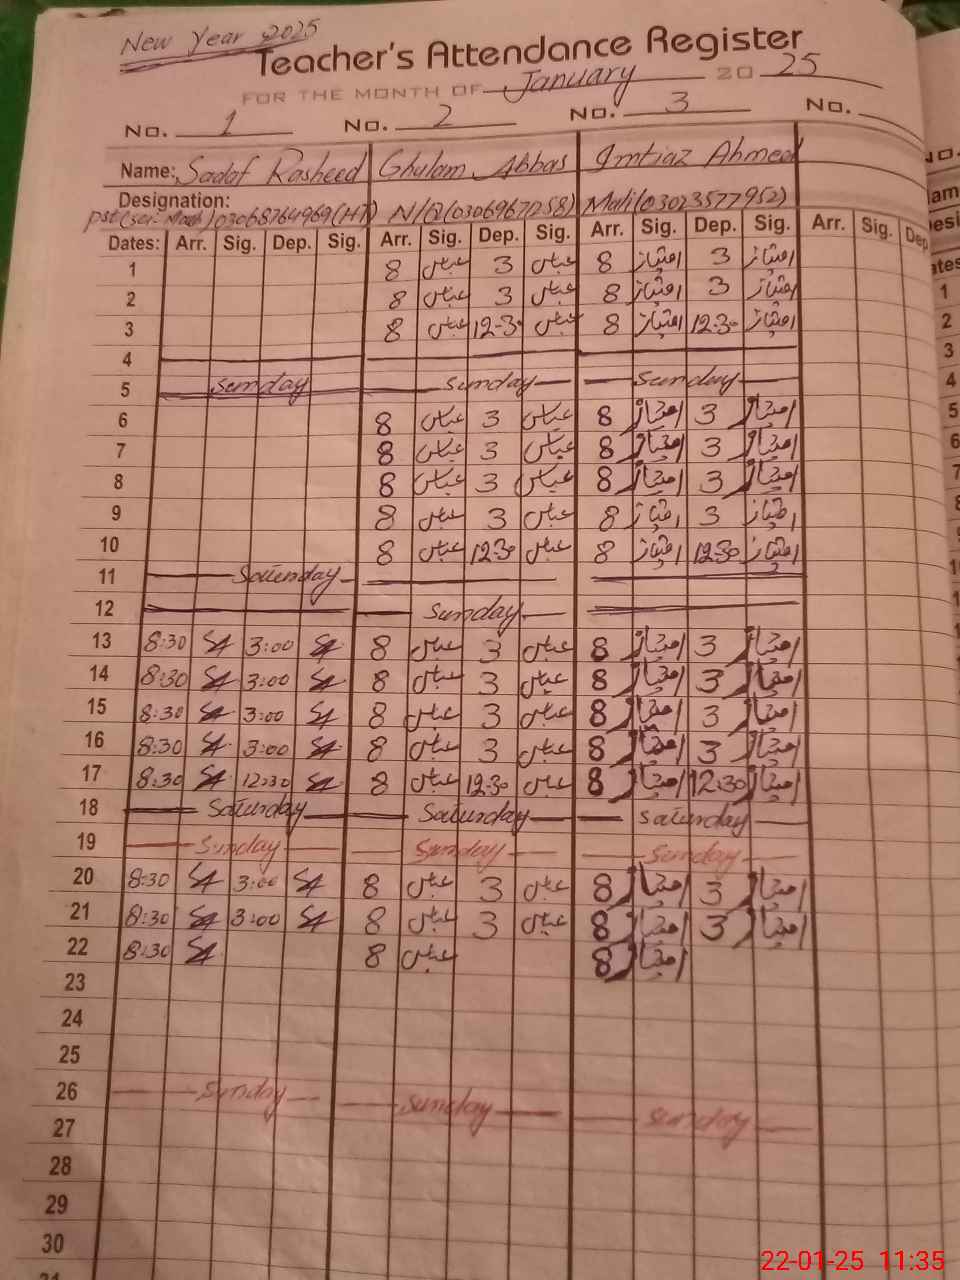 New Year 2025
Teacher's Attendance Register
FOR THE MONTH OF January 2025
No. 1 No. 2 No. 3 No.
Name: Sadaf Rasheed Ghulam Abbas Imtiaz Ahmed
Designation:
N/Q Mali (03023577952)
Dates: Arr. Sig. Dep. Sig. Arr. Sig. Dep. Sig. Arr. Sig. Dep. Sig. Arr. Sig. Dep
1 8 عباس 3 عباس 8 امتیاز 3 امتیاز
2 8 عباس 3 عباس 8 امتیاز 3 امتیاز
3 8 عباس 12-30 عباس 8 امتیاز 12-30 امتیاز
4
5 Sunday Sunday Sunday
6 8 عباس 3 عباس 8 امتیاز 3 امتیاز
7 8 عباس 3 عباس 8 امتیاز 3 امتیاز
8 8 عباس 3 عباس 8 امتیاز 3 امتیاز
9 8 عباس 3 عباس 8 امتیاز 3 امتیاز
10 8 عباس 12-30 عباس 8 امتیاز 12-30 امتیاز
11 Saturday
12 Sunday
13 8:30 3:00 8 عباس 3 عباس 8 امتیاز 3 امتیاز
14 8:30 3:00 8 عباس 3 عباس 8 امتیاز 3 امتیاز
15 8:30 3:00 8 عباس 3 عباس 8 امتیاز 3 امتیاز
16 8:30 3:00 8 عباس 3 عباس 8 امتیاز 3 امتیاز
17 8:30 12:30 8 عباس 12-30 عباس 8 امتیاز 12:30 امتیاز
18 Saturday Saturday Saturday
19 Sunday Sunday Sunday
20 8:30 3:00 8 عباس 3 عباس 8 امتیاز 3 امتیاز
21 8:30 3:00 8 عباس 3 عباس 8 امتیاز 3 امتیاز
22 8:30 8 عباس 8 امتیاز
23
24
25
26 Sunday Sunday Sunday
27
28
29
30
22-01-25 11:35